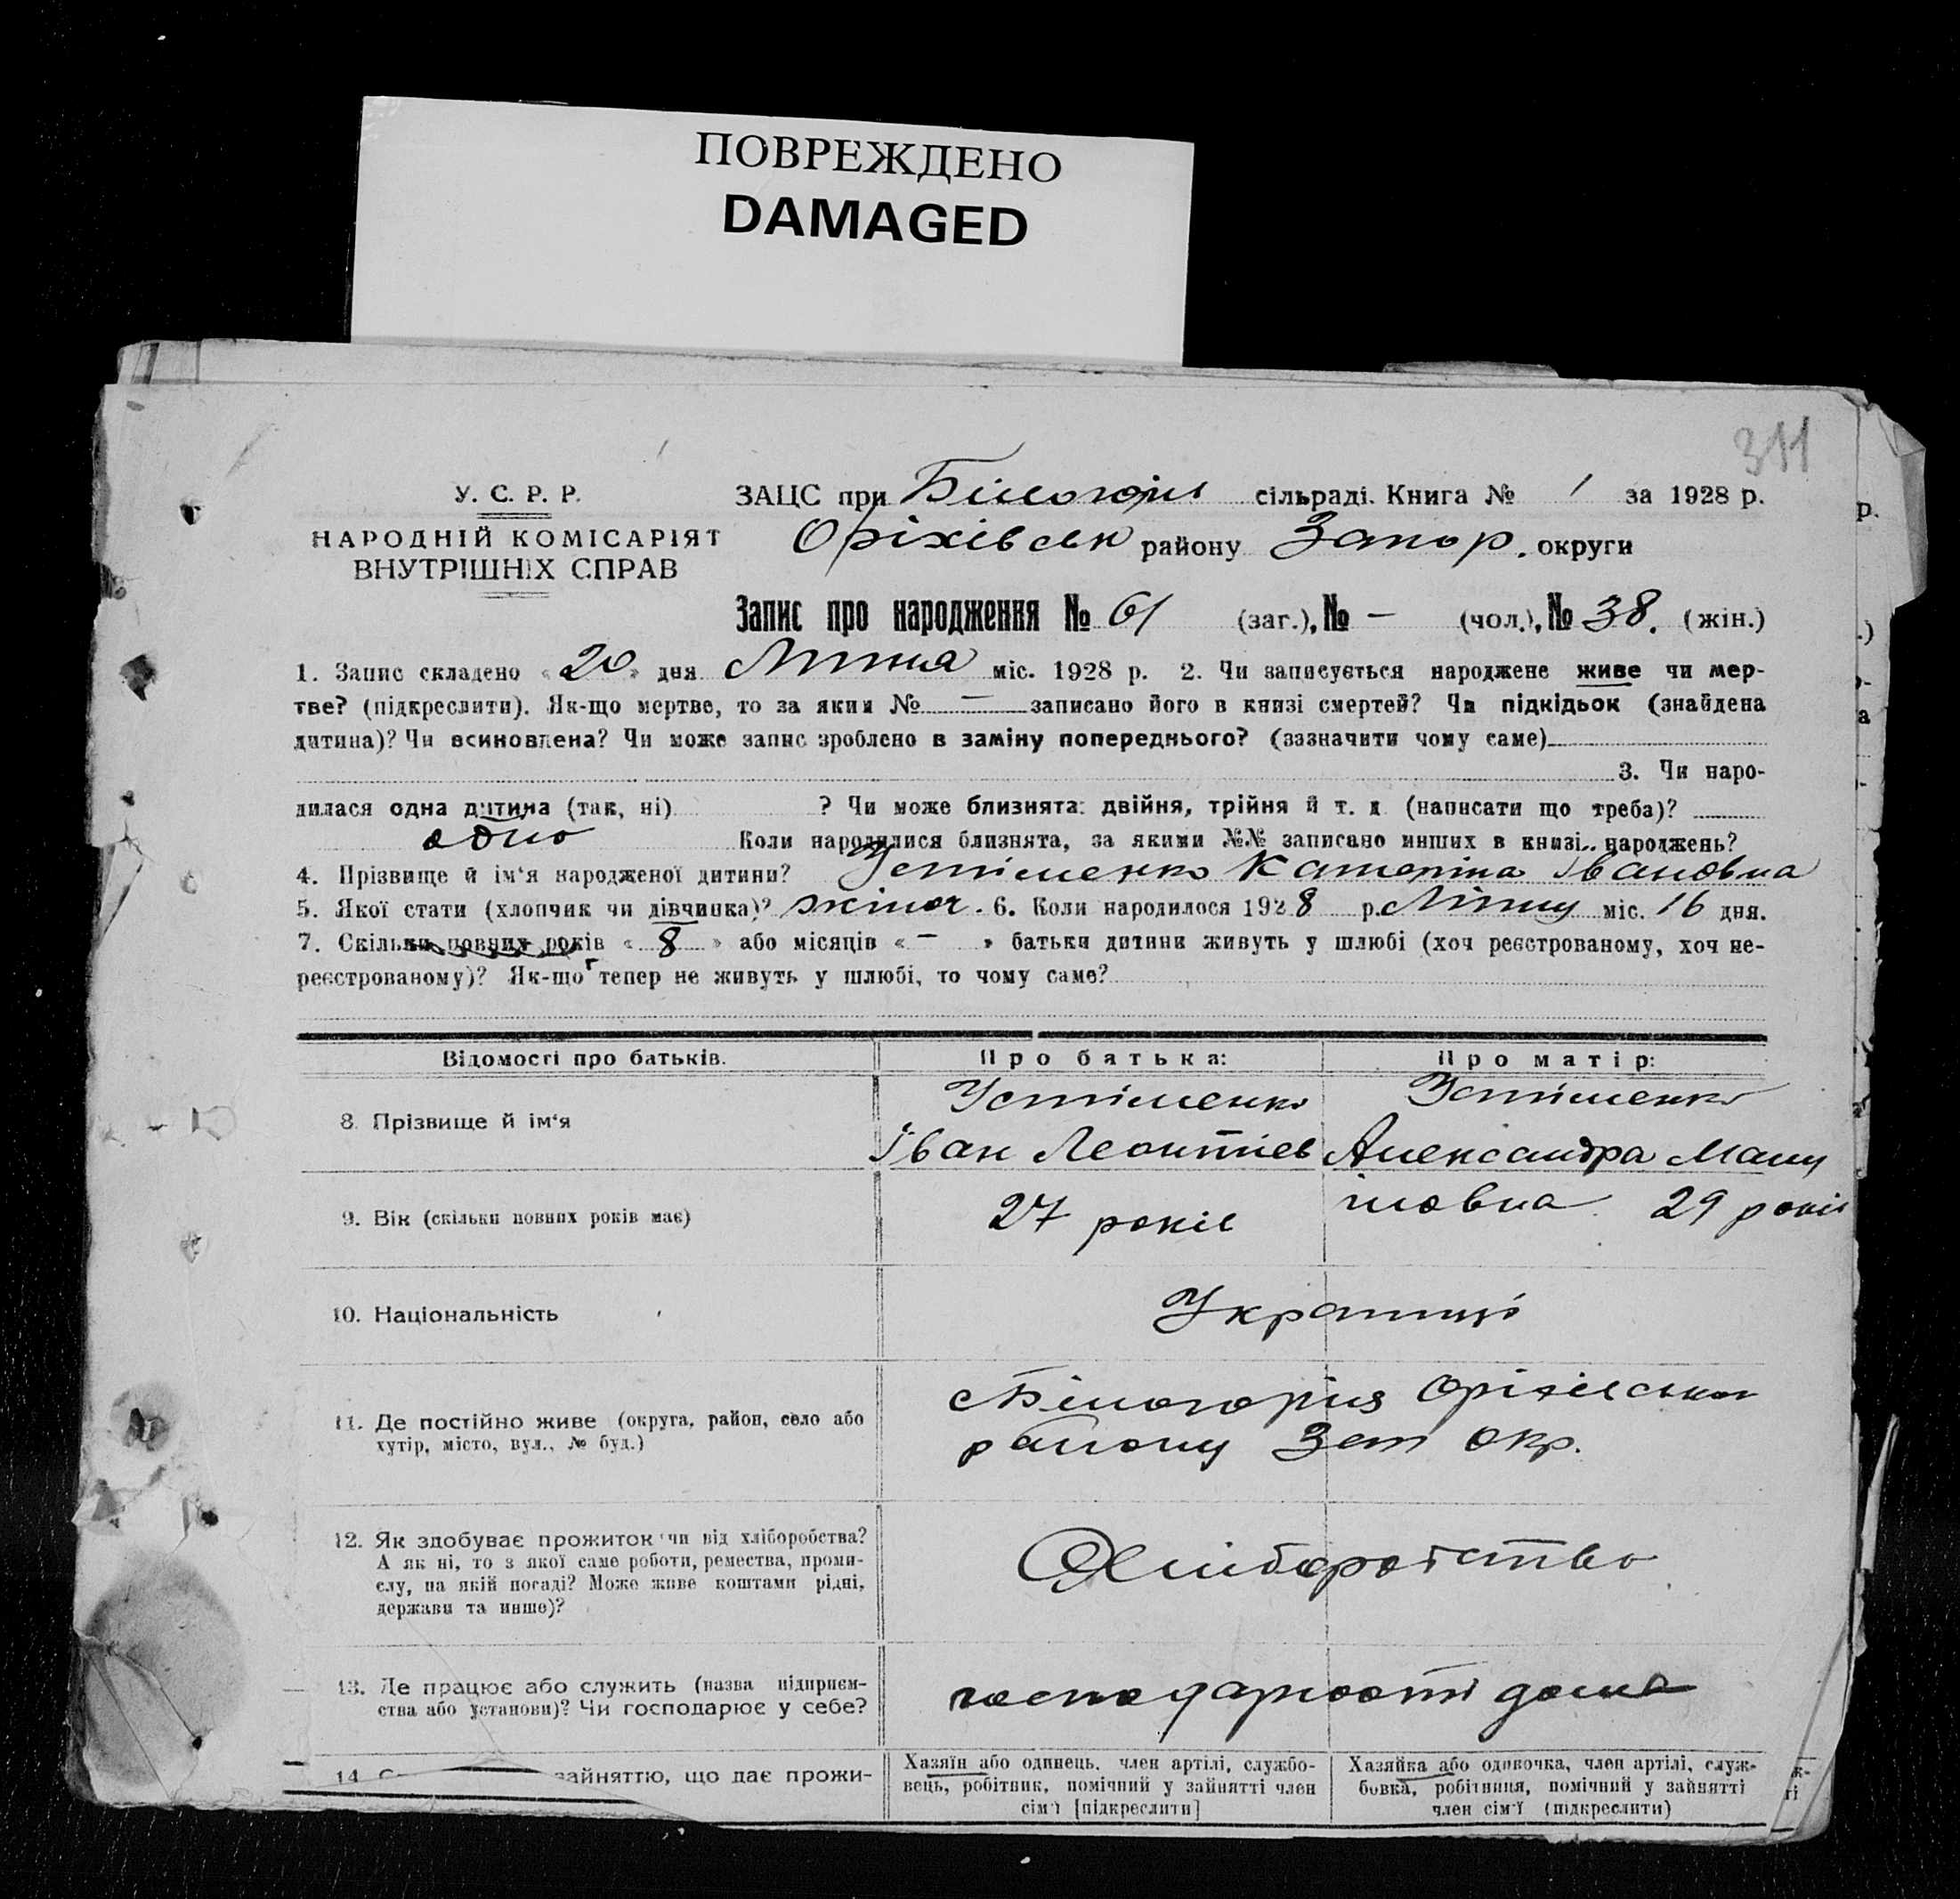 ПОВРЕЖДЕНО
DAMAGED
311
У. С. Р. Р.
НАРОДНІЙ КОМІСАРІЯТ
ВНУТРІШНІХ СПРАВ
ЗАЦС при Білогорʼї сільраді. Книга № 1 за 1928 р.
Оріхівськ району Запор. округи
Запис про народження № 61 (заг.), № – (чол.), № 38. (жін.)
1. Запис складено « 20 » дня Липня міс. 1928 р. 2. Чи записується народжене живе чи мер-
тве? (підкреслити). Як-що мертве, то за яким № — записано його в книзі смертей? Чи підкідьок (знайдена
дитина)? Чи всиновлена? Чи може запис зроблено в заміну попереднього? (зазначити чому саме)
3. Чи наро-
дилася одна дитина (так, ні) ? Чи може близнята: двійня, трійня й т. д. (написати що треба)?
одно Коли народилися близнята, за якими №№ записано инших в книзі народжень?
4. Прізвище й ім‘я народженої дитини? Устіменко Катеріна Івановна
5. Якої стати (хлопчик чи дівчинка)? жіноч. 6. Коли народилося 1928 р. Ліпня міс. 16 дня.
7. Скільки повних років « 8 » або місяців « – » батьки дитини живуть у шлюбі (хоч реєстрованому, хоч не-
реєстрованому)? Як-що тепер не живуть у шлюбі, то чому саме?
Відомості про батьків.
Про батька:
Про матір:
8. Прізвище й ім‘я
Устіменко
Іван Леонтіев
Устіменко
Александра
9. Вік (скільки повних років має)
27 років
29 років
10. Національність
Українці
11. Де постійно живе (округа, район, село або
хутір, місто, вул., № буд.)
с Білогорія Оріхівськ
району Зап окр.
12. Як здобуває прожиток чи від хліборобства?
А як ні, то з якої саме роботи, ремества, проми-
слу, на якій посаді? Може живе коштами рідні,
держави та инше)?
Хліборобство
13. Де працює або служить (назва підприєм-
ства або установи)? Чи господарює у себе?
дома
14. зайняттю, що дає прожи-
Хазяїн або одинець, член артілі, службо-
вець, робітник, помічний у зайнятті член
сім‘ї [підкреслити]
Хазяйка або одиночка, член артілі, служ-
бовка, робітниця, помічний у зайнятті
член сім‘ї (підкреслити)